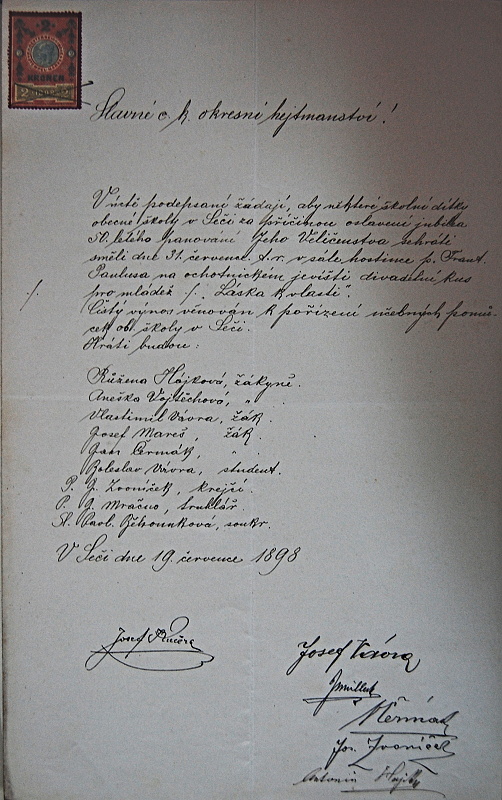 2
KRONEN
2 2
Slavné c. k. okresní hejtmanství!
V úctě podepsaní žádají, aby některé školní dítky
obecné školy v Seči za příčinou oslavení jubilea
50. letého panování Jeho Veličenstva sehráti
směli dne 31. července t. r. v sále hostince p. Frant.
Paulusa na ochotnickém jevišti divadelní kus
./. pro mládež ./. "Láska k vlasti".
Čistý výnos věnován k pořízení učebných pomů-
cek ob. školy v Seči.
Hráti budou:
Růžena Hájková, žákyně.
Anežka Vojtěchová, "
Vlastimil Vávra, žák.
Josef Mareš, žák.
Jan Čermák, "
Boleslav Vávra, student.
P. J. Zvoníček, krejčí.
P. J. Mračno, truhlář.
Sl. Paol. soukr.
V Seči dne 19. července 1898
Josef Kučera
Josef Vávra
Čermák
Jos. Zvoníček
Antonín